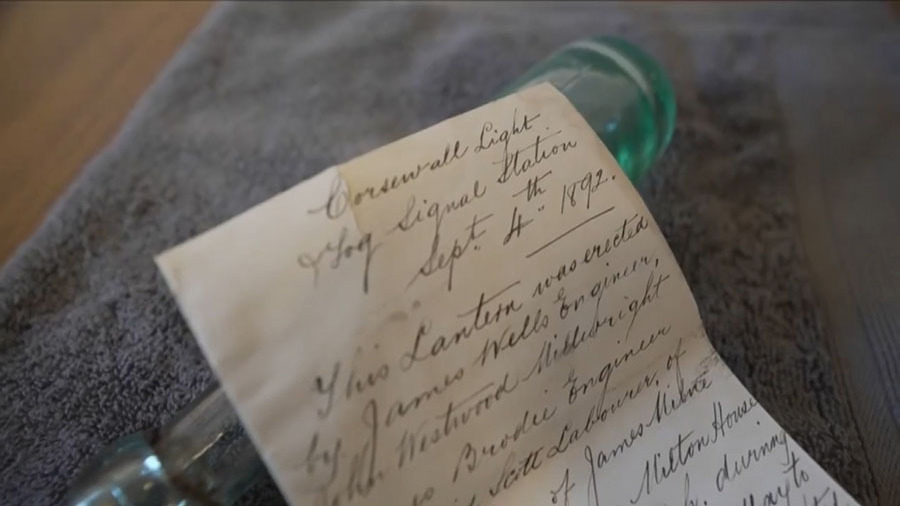 Corsewall Light
& Fog Signal Station
Sept. 4th 1892.
This Lantern was erected
by James Wells Engineer,
John Westwood Millwright
Brodie Engineer
Scott Labourer, of
of James Milne
Milton House
during
to